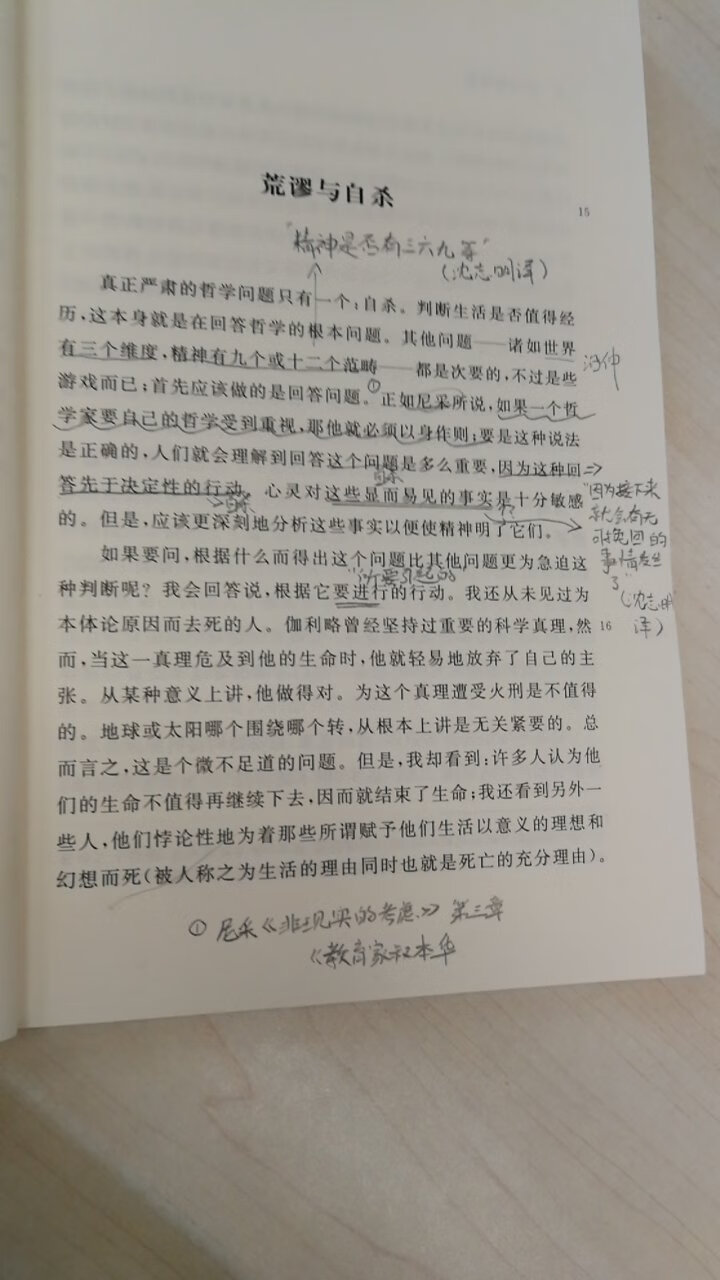 荒谬与自杀
15
"精神是否有三六九等"
(沈志明译)
真正严肃的哲学问题只有一个:自杀。判断生活是否值得经
历,这本身就是在回答哲学的根本问题。其他问题——诸如世界
有三个维度,精神有九个或十二个范畴——都是次要的,不过是些
游戏而已;首先应该做的是回答问题。①正如尼采所说,如果一个哲
学家要自己的哲学受到重视,那他就必须以身作则;要是这种说法
是正确的,人们就会理解到回答这个问题是多么重要,因为这种回
答先于决定性的行动。心灵对这些显而易见的事实是十分敏感
的。但是,应该更深刻地分析这些事实以便使精神明了它们。
"因为接下来
就会有无
可挽回的
事情发生
了"
(沈志明
译)
如果要问,根据什么而得出这个问题比其他问题更为急迫这
"所要引起的
种判断呢?我会回答说,根据它要进行的行动。我还从未见过为
本体论原因而去死的人。伽利略曾经坚持过重要的科学真理,然
16
而,当这一真理危及到他的生命时,他就轻易地放弃了自己的主
张。从某种意义上讲,他做得对。为这个真理遭受火刑是不值得
的。地球或太阳哪个围绕哪个转,从根本上讲是无关紧要的。总
而言之,这是个微不足道的问题。但是,我却看到:许多人认为他
们的生命不值得再继续下去,因而就结束了生命;我还看到另外一
些人,他们悖论性地为着那些所谓赋予他们生活以意义的理想和
幻想而死(被人称之为生活的理由同时也就是死亡的充分理由)。
① 尼采《非现实的考虑》第三章
《教育家叔本华